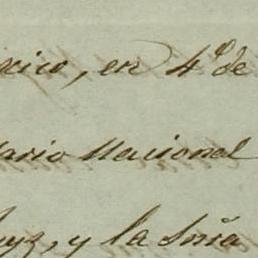 xico, en 4º de
tario Nacional
uyz, y la Sriâ